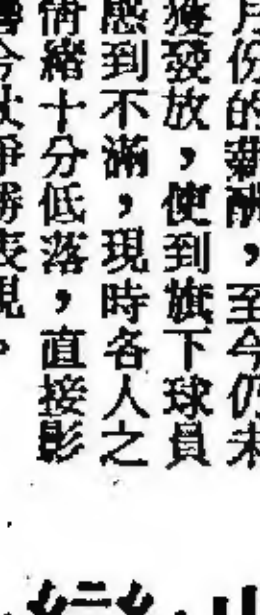 月份的薪酬，至今仍未
獲發放，使到旗下球員
感到不滿，現時各人之
情緒十分低落，直接影
響今次爭勝表現。